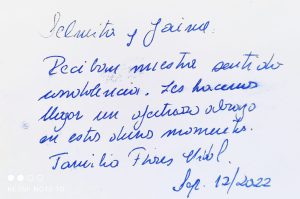 Telmita y Jaime:
Reciban nuestra sentida
condolencia. Les hacemos
llegar un afectuoso abrazo
en estos duros momentos.
Familia Flores Vidal.
Sep. 12/2022